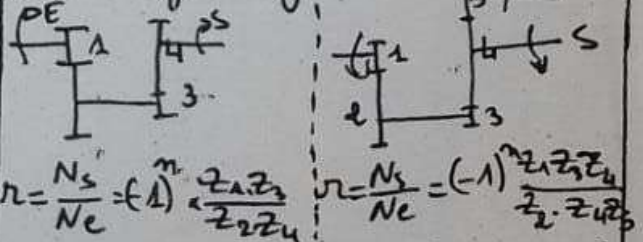 E 1 4 S
3
r = Ns/Ne = (-1)^n × Z1.Z3/Z2Z4
1 4 S
2 3
r = Ns/Ne = (-1)^n Z1Z3Z4/Z2.Z4Z5